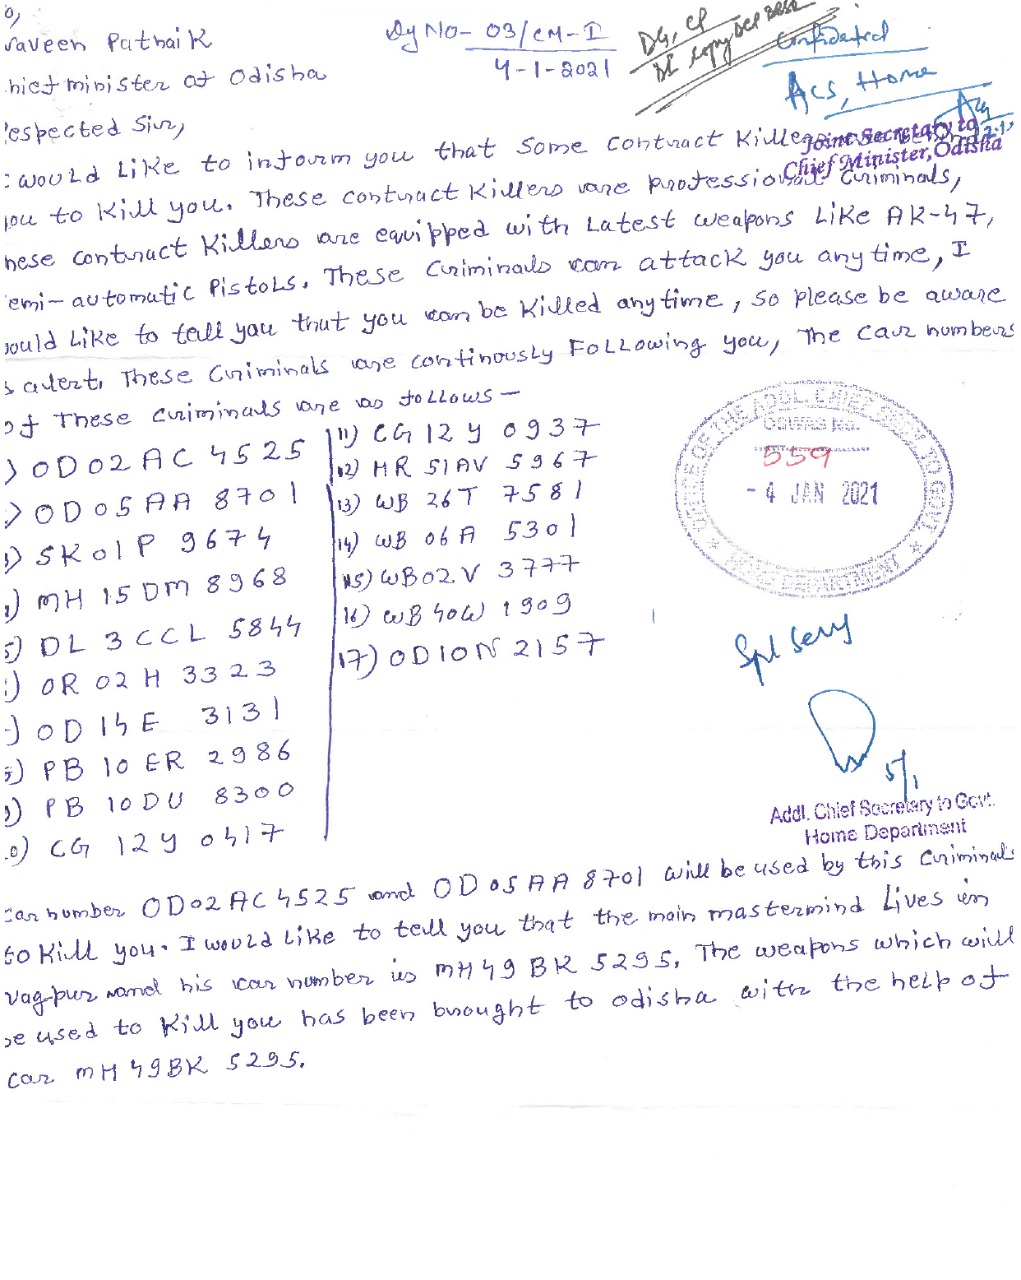 o,
raveen Patnaik
hief minister of Odisha
Dy No- 03/CM-I
4-1-2021
DG, CP
Confidential
ACS, Home
Joint Secretary to
Chief Minister, Odisha
espected Sir,
I would Like to inform you that Some contract Killers
you to Kill you. These contract Killers are professional Criminals,
hese contract Killers are equipped with Latest weapons Like AK-47,
emi-automatic Pistols. These Criminals can attack you any time, I
would Like to tell you that you can be Killed anytime, so please be aware
& alert, These Criminals are continously FoLLowing you, The car numbers
of These criminals are as foLLows -
) OD02 AC 4525
) OD 05 AA 8701
) SK01P 9674
) MH 15 DM 8968
5) DL 3 CCL 5844
) OR 02 H 3323
) OD 14E 3131
) PB 10 ER 2986
) PB 10 DU 8300
0) CG 12 Y 0417
11) CG 12 Y 0937
12) HR 51 AV 5967
13) WB 26T 7581
14) WB 06 A 5301
15) WB02 V 3777
16) WB 40W 1909
17) OD10N 2157
OFFICE OF THE ADDL. CHIEF SECY. TO GOVT.
OSWAS No.
559
- 4 JAN 2021
HOME DEPARTMENT
Spl Secy
5/1
Addl. Chief Secretary to Govt.
Home Department
car number OD02 AC 4525 and OD 05 AA 8701 will be used by this Criminals
to Kill you. I would Like to tell you that the main mastermind Lives in
Nagpur and his car number is MH 49 BK 5295. The weapons which will
be used to Kill you has been brought to odisha with the help of
car MH 49BK 5295.